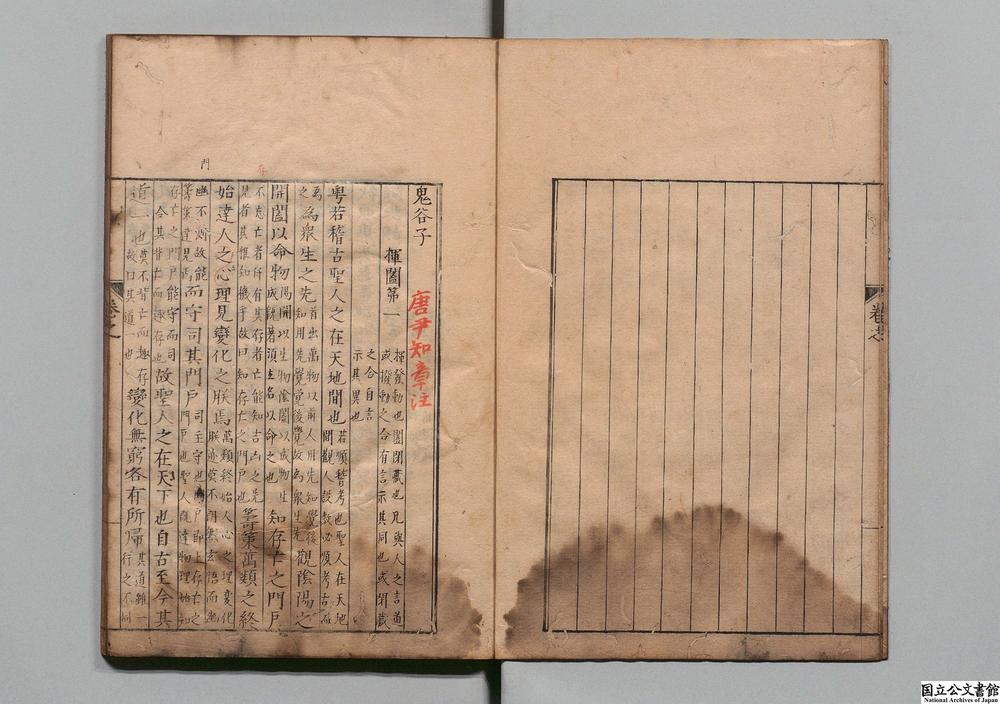 鬼谷子
揮闔第一
揮發動也闔閉藏也凡與人之言道
或撥動之合有言示其同也或閉藏
之合自言
示其異也
唐尹知章注
粤若稽古聖人之在天地間也
若順稽考也聖人在天地
間觀人設教必順考古道
為
之
為衆生之先
首出萬物以前人用先知覺後
知用先覺覺後覺故為衆生先
觀陰陽之
開闔以命物
陽開以生物陰闔以成物生
成既著須立名以命之也
知存亡之門戶
不忘亡者存有其存者亡能知吉凶之先
見者其惟知機乎故曰知存亡之門戶也
籌策萬類之終
始達人之心理見變化之朕焉
萬類終始人心之理變化
朕迹莫不朗然玄悟而無
幽不測故能
籌策達見焉
而守司其門戶
司主守也門戶即上存亡之
門戶也聖人既達物理終始知
存亡之門戶能守而司
之令其背亡而趣存也
故聖人之在天下也自古至今其
道一也
莫不背亡而趣存
故曰其道一也
變化無窮各有所歸
其道雖一
行之不同
存
門
国立公文書館
National Archives of Japan